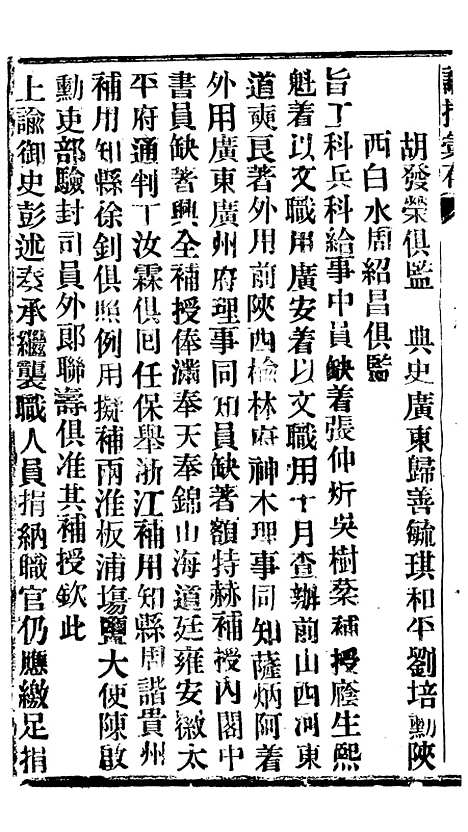 諭摺彙存
胡發榮俱監　典史廣東歸善毓琪和平劉培勳陝
西白水周紹昌俱監
旨工科兵科給事中員缺着張仲炘吳樹棻補授廕生熙
魁着以文職用廣安着以文職用十月查辦前山西河東
道奭良著外用前陝西榆林府神木理事同知薩炳阿着
外用廣東廣州府理事同知員缺著額特赫補授內閣中
書員缺著興全補授俸滿奉天奉錦山海道廷雍安徽太
平府通判丁汝霖俱回任保舉浙江補用知縣周諧貴州
補用知縣徐釗俱照例用擬補兩淮板浦場鹽大使陳啟
勳吏部驗封司員外郎聯壽俱准其補授欽此
上諭御史彭述奏承繼襲職人員捐納職官仍應繳足捐